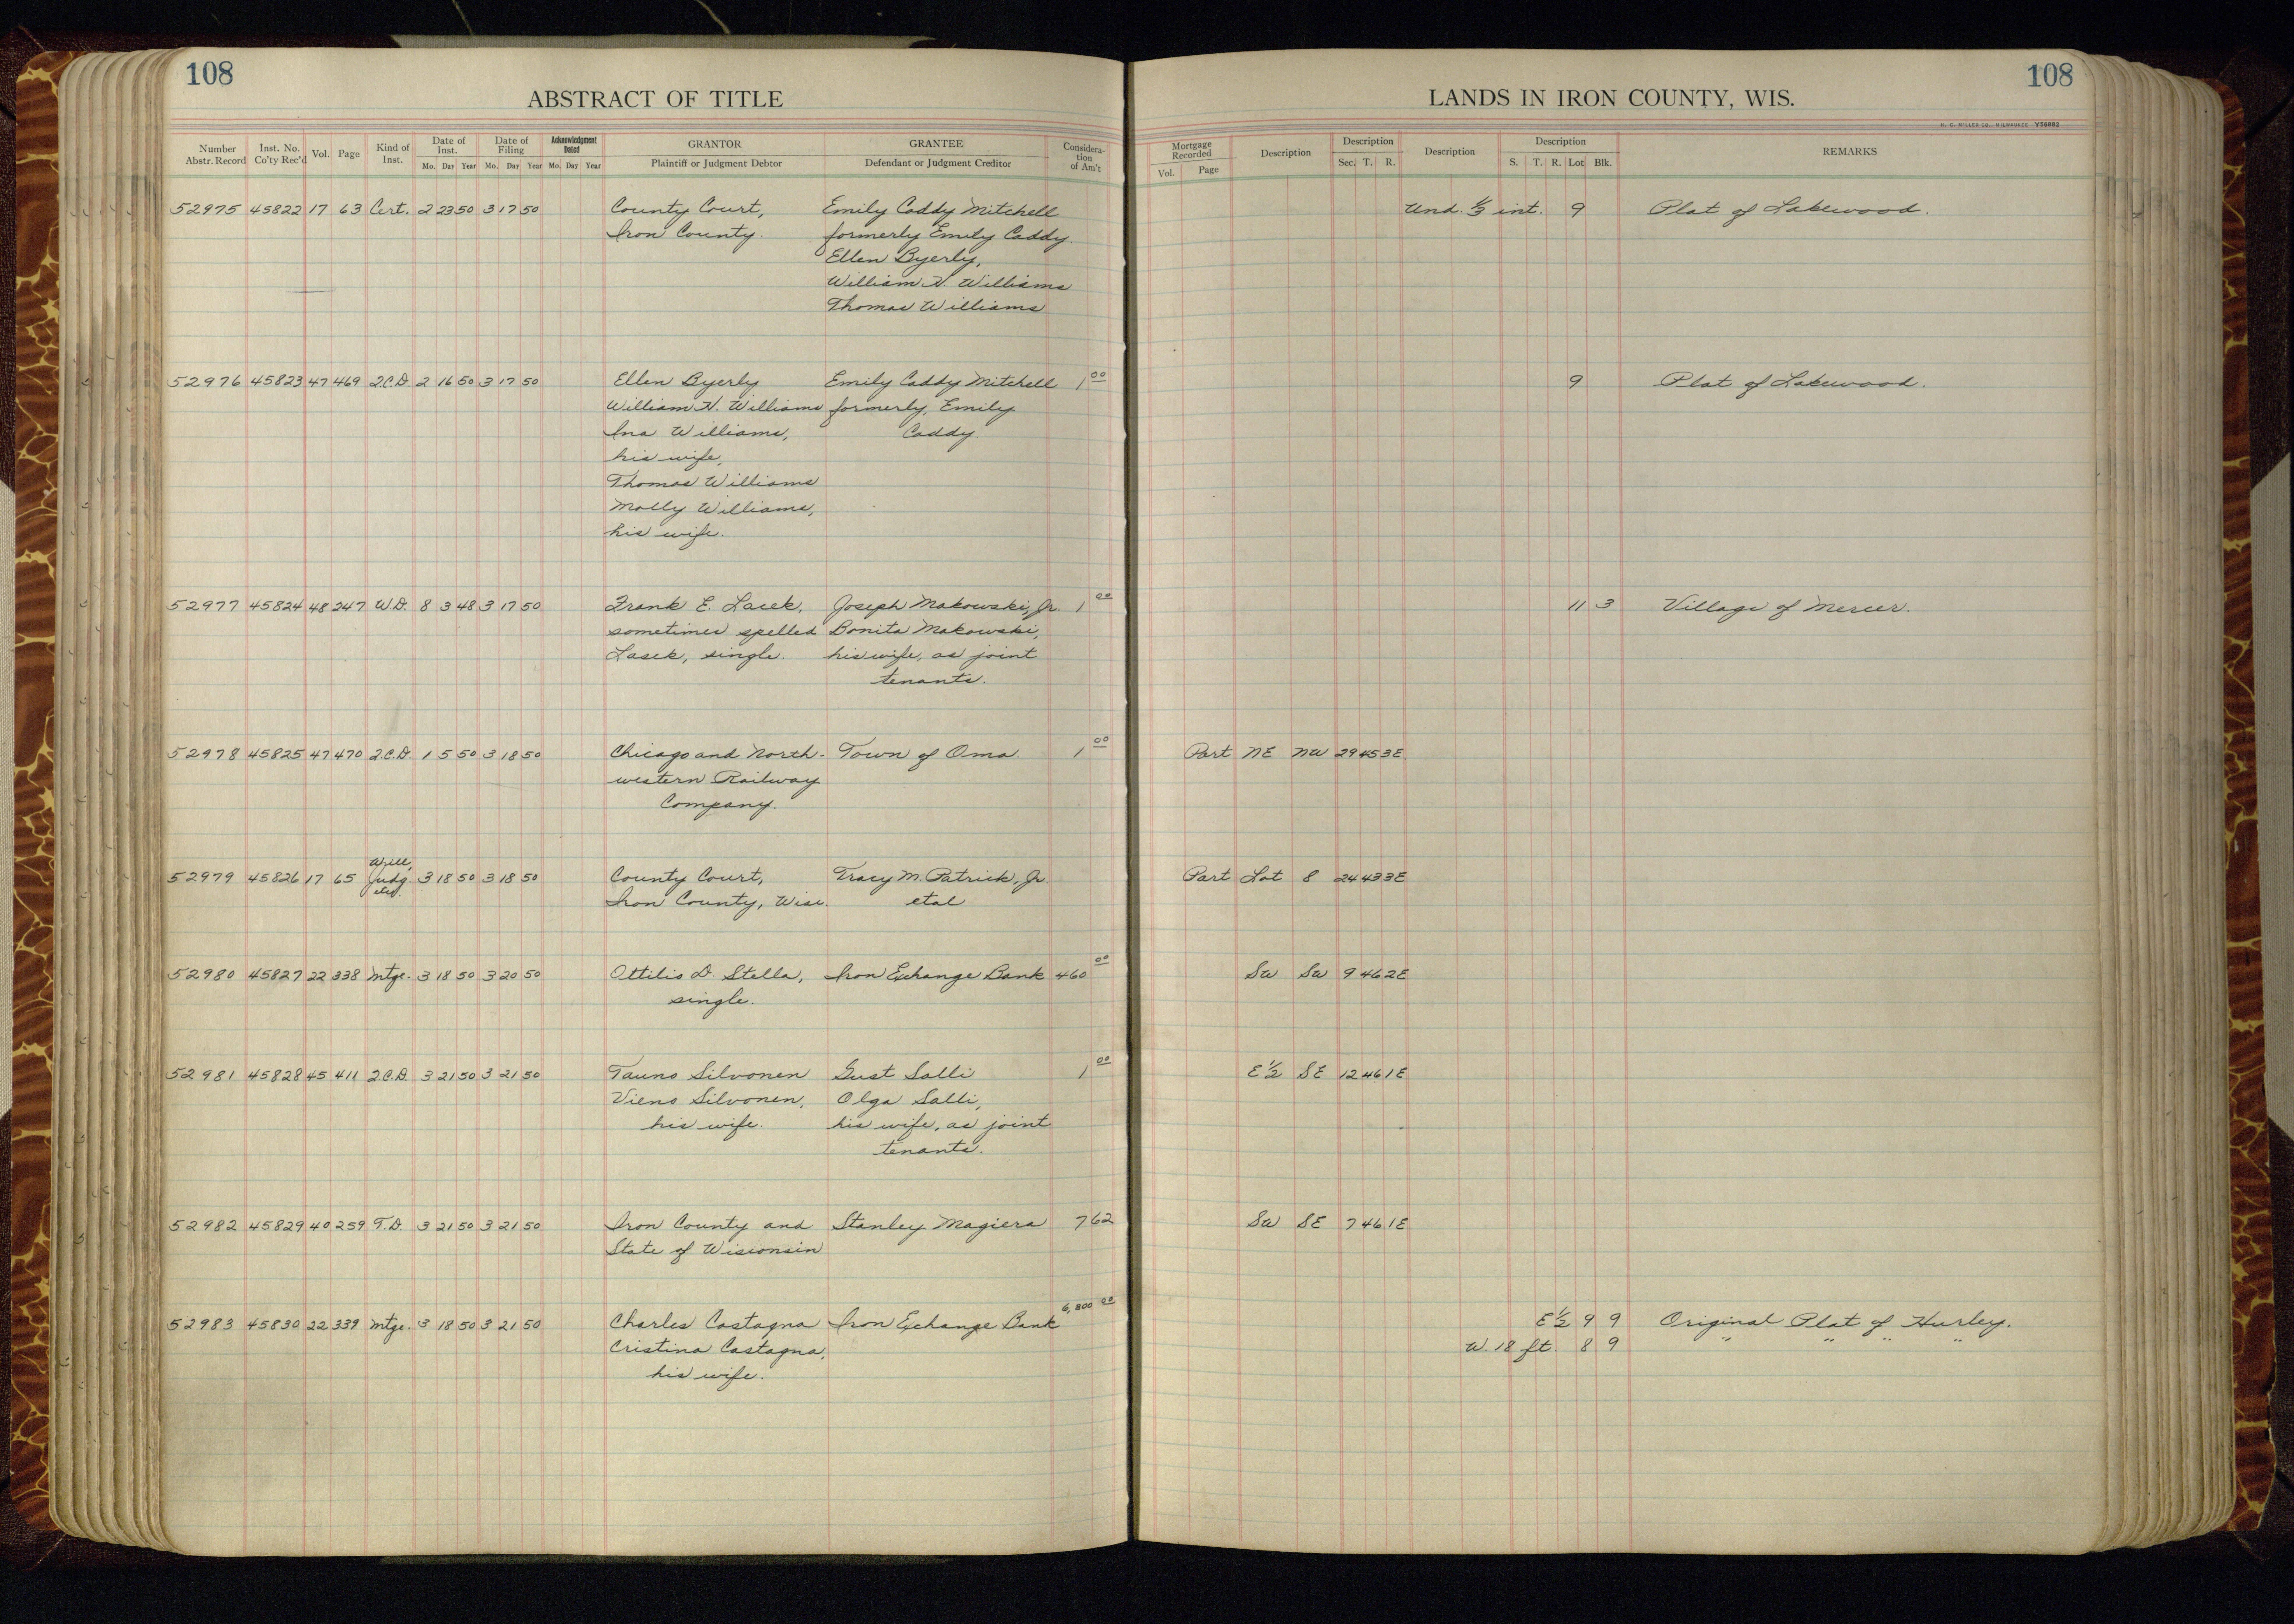 108
ABSTRACT OF TITLE
Number Abstr. Record
Inst. No. Co'ty Rec'd
Vol.
Page
Kind of Inst.
Date of Inst.
Mo. Day Year
Date of Filing
Mo. Day Year
Acknowledgment Dated
Mo. Day Year
GRANTOR
Plaintiff or Judgment Debtor
GRANTEE
Defendant or Judgment Creditor
Consideration of Am't
52975 45822 17 63 Cert. 2 23 50 3 17 50 County Court, Emily Caddy Mitchell
Iron County. formerly Emily Caddy.
Ellen Byerly,
William H. Williams
Thomas Williams
52976 45823 47 469 Q.C.D. 2 16 50 3 17 50 Ellen Byerly Emily Caddy Mitchell 1 00
William H. Williams formerly, Emily
Ina Williams, Caddy
his wife,
Thomas Williams
Molly Williams,
his wife.
52977 45824 48 247 W.D. 8 3 48 3 17 50 Frank E. Lacek, Joseph Makowski, Jr. 1 00
sometimes spelled Bonita Makowski,
Lasek, single. his wife, as joint
tenants.
52978 45825 47 470 Q.C.D. 1 5 50 3 18 50 Chicago and North- Town of Oma. 1 00
western Railway
Company.
Will,
52979 45826 17 65 Judg. 3 18 50 3 18 50 County Court, Tracy M. Patrick, Jr.
etc. Iron County, Wisc. etal
52980 45827 22 338 Mtge. 3 18 50 3 20 50 Ottilio D. Stella, Iron Exchange Bank 460 00
single.
52981 45828 45 411 Q.C.D. 3 21 50 3 21 50 Tauno Silvonen Gust Salli 1 00
Vieno Silvonen, Olga Salli,
his wife. his wife, as joint
tenants.
52982 45829 40 259 T.D. 3 21 50 3 21 50 Iron County and Stanley Magiera 7 62
State of Wisconsin
52983 45830 22 339 Mtge. 3 18 50 3 21 50 Charles Castagna Iron Exchange Bank 6,800 00
Cristina Castagna,
his wife.
108
LANDS IN IRON COUNTY, WIS.
H. C. MILLER CO., MILWAUKEE Y56882
Mortgage Recorded
Vol. Page
Description
Description
Sec. T. R.
Description
Description
S. T. R. Lot Blk.
REMARKS
Und. 1/3 int. 9 Plat of Lakewood.
9 Plat of Lakewood.
11 3 Village of Mercer.
Part NE NW 29 45 3E.
Part Lot 8 24 43 3E
SW SW 9 46 2E
E 1/2 SE 12 46 1E
SW SE 7 46 1E
E 1/2 9 9 Original Plat of Hurley.
W. 18 ft. 8 9 " " " "